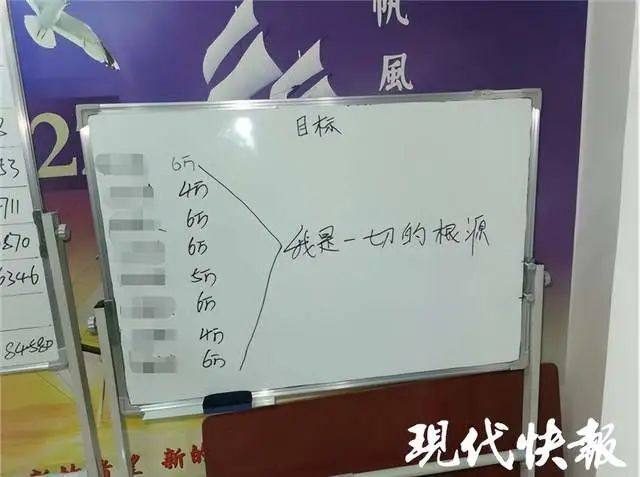 帆
風
22
53
711
570
6346
84580
目标
6万
4万
6万
6万
5万
6万
4万
6万
我是一切的根源
新的
現代快報